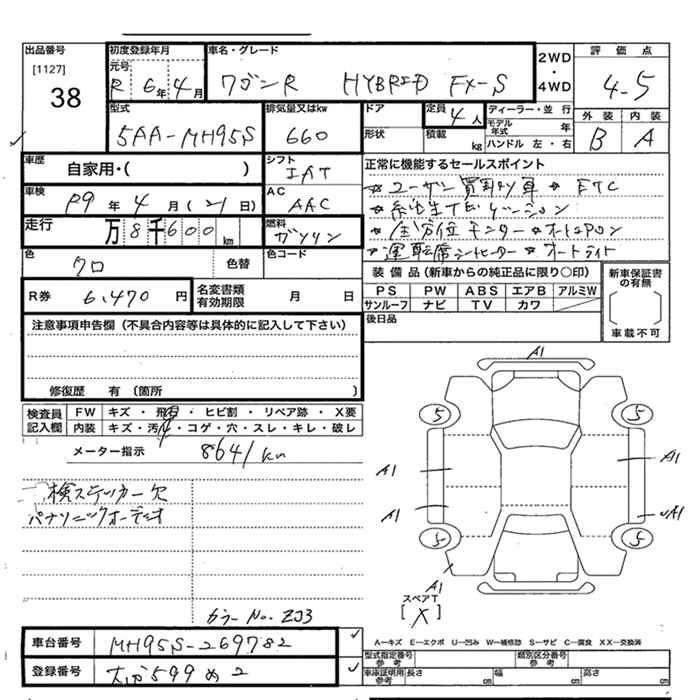 出品番号
[1127]
38
初度登録年月
元号
R 6年 4月
車名・グレード
ワゴンR HYBRID FX-S
2WD
・
4WD
評価点
4.5
型式
5AA-MH95S
排気量又はkw
660
ドア
形状
定員
4人
積載
kg
ディーラー・並行
モデル年式 年
ハンドル 左・右
外装
B
内装
A
車歴
自家用・( )
シフト
IAT
正常に機能するセールスポイント
☆ユーザー買取車 ☆ ETC
☆衝突
☆全方位モニター ☆オートエアコン
☆運転席シートヒーター ☆オートライト
車検
R9年 4月(21日)
AC
AAC
走行
万8千600km
燃料
ガソリン
色
クロ
色替
色コード
装備品(新車からの純正品に限り○印)
PS PW ABS エアB アルミW
サンルーフ ナビ TV カワ
後日品
新車保証書の有無
車載不可
R券
6,470円
名変書類有効期限 月 日
注意事項申告欄(不具合内容等は具体的に記入して下さい)
修復歴 有(箇所 )
検査員記入欄
FW キズ・飛石・ヒビ割・リペア跡・X要
内装 キズ・汚れ・コゲ・穴・スレ・キレ・破レ
メーター指示 8641km
検ステッカー欠
パナソニックオーディオ
カラーNo. ZJ3
A1
5
5
A1
A1
A1
A1
5
5
A1
スペアT
[X]
A-キズ E-エクボ U-凹み W-補修跡 S-サビ C-腐食 XX-交換済
車台番号
MH95S-269782
登録番号
大分 599 め 2
型式指定番号
参考
類別区分番号
参考
車庫証明用
参考
長さ
cm
幅
cm
高さ
cm